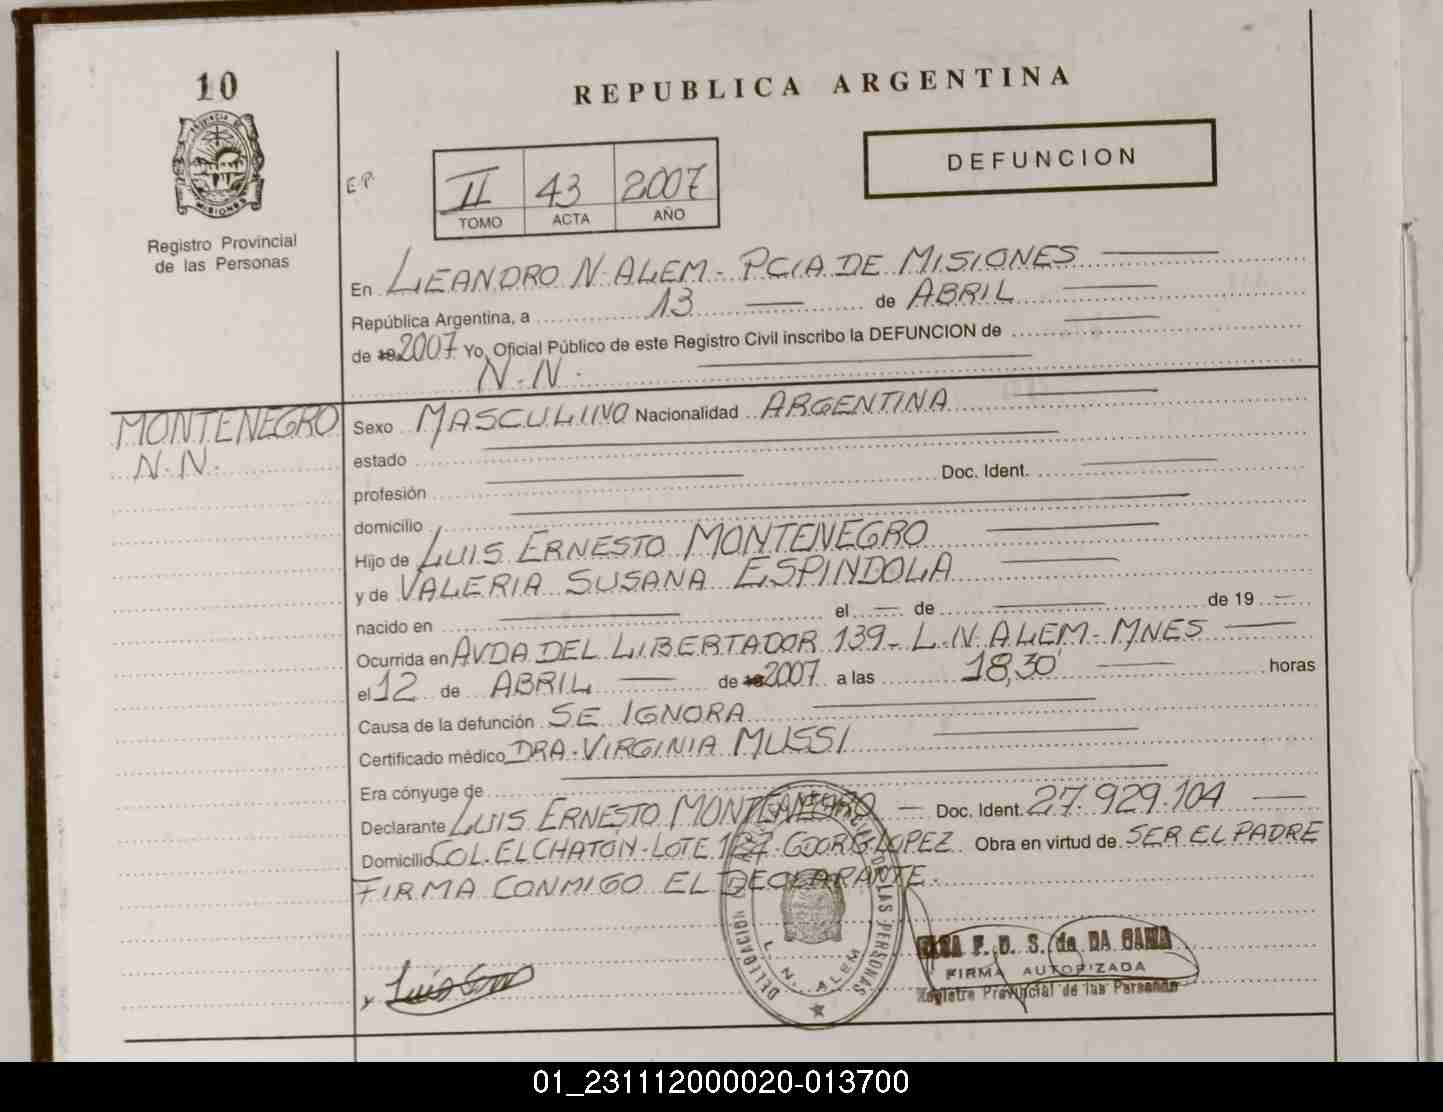 10
PROVINCIA DE
MISIONES
Registro Provincial
de las Personas
REPUBLICA ARGENTINA
DEFUNCION
E.P.
II 43 2007
TOMO ACTA AÑO
En LEANDRO N. ALEM - PCIA DE MISIONES
República Argentina, a 13 de ABRIL
de 19 2007 Yo, Oficial Público de este Registro Civil inscribo la DEFUNCION de
N.N.
MONTENEGRO
N.N.
Sexo MASCULINO Nacionalidad ARGENTINA
estado
profesión Doc. Ident.
domicilio
Hijo de LUIS ERNESTO MONTENEGRO
y de VALERIA SUSANA ESPINDOLA
nacido en el de de 19
Ocurrida en AVDA DEL LIBERTADOR 139 - L.N. ALEM - MNES
el 12 de ABRIL de 19 2007 a las 18,30 horas
Causa de la defunción SE IGNORA
Certificado médico DRA. VIRGINIA MUSSI
Era cónyuge de
Declarante LUIS ERNESTO MONTENEGRO Doc. Ident. 27.929.104
Domicilio COL. EL CHATÓN - LOTE Obra en virtud de SER EL PADRE
FIRMA CONMIGO EL DECLARANTE.
DELEGACION DE LAS PERSONAS
L. N. ALEM
Luis
F. D. S. de DA GAMA
FIRMA AUTORIZADA
Registro Provincial de las Personas
01_231112000020-013700